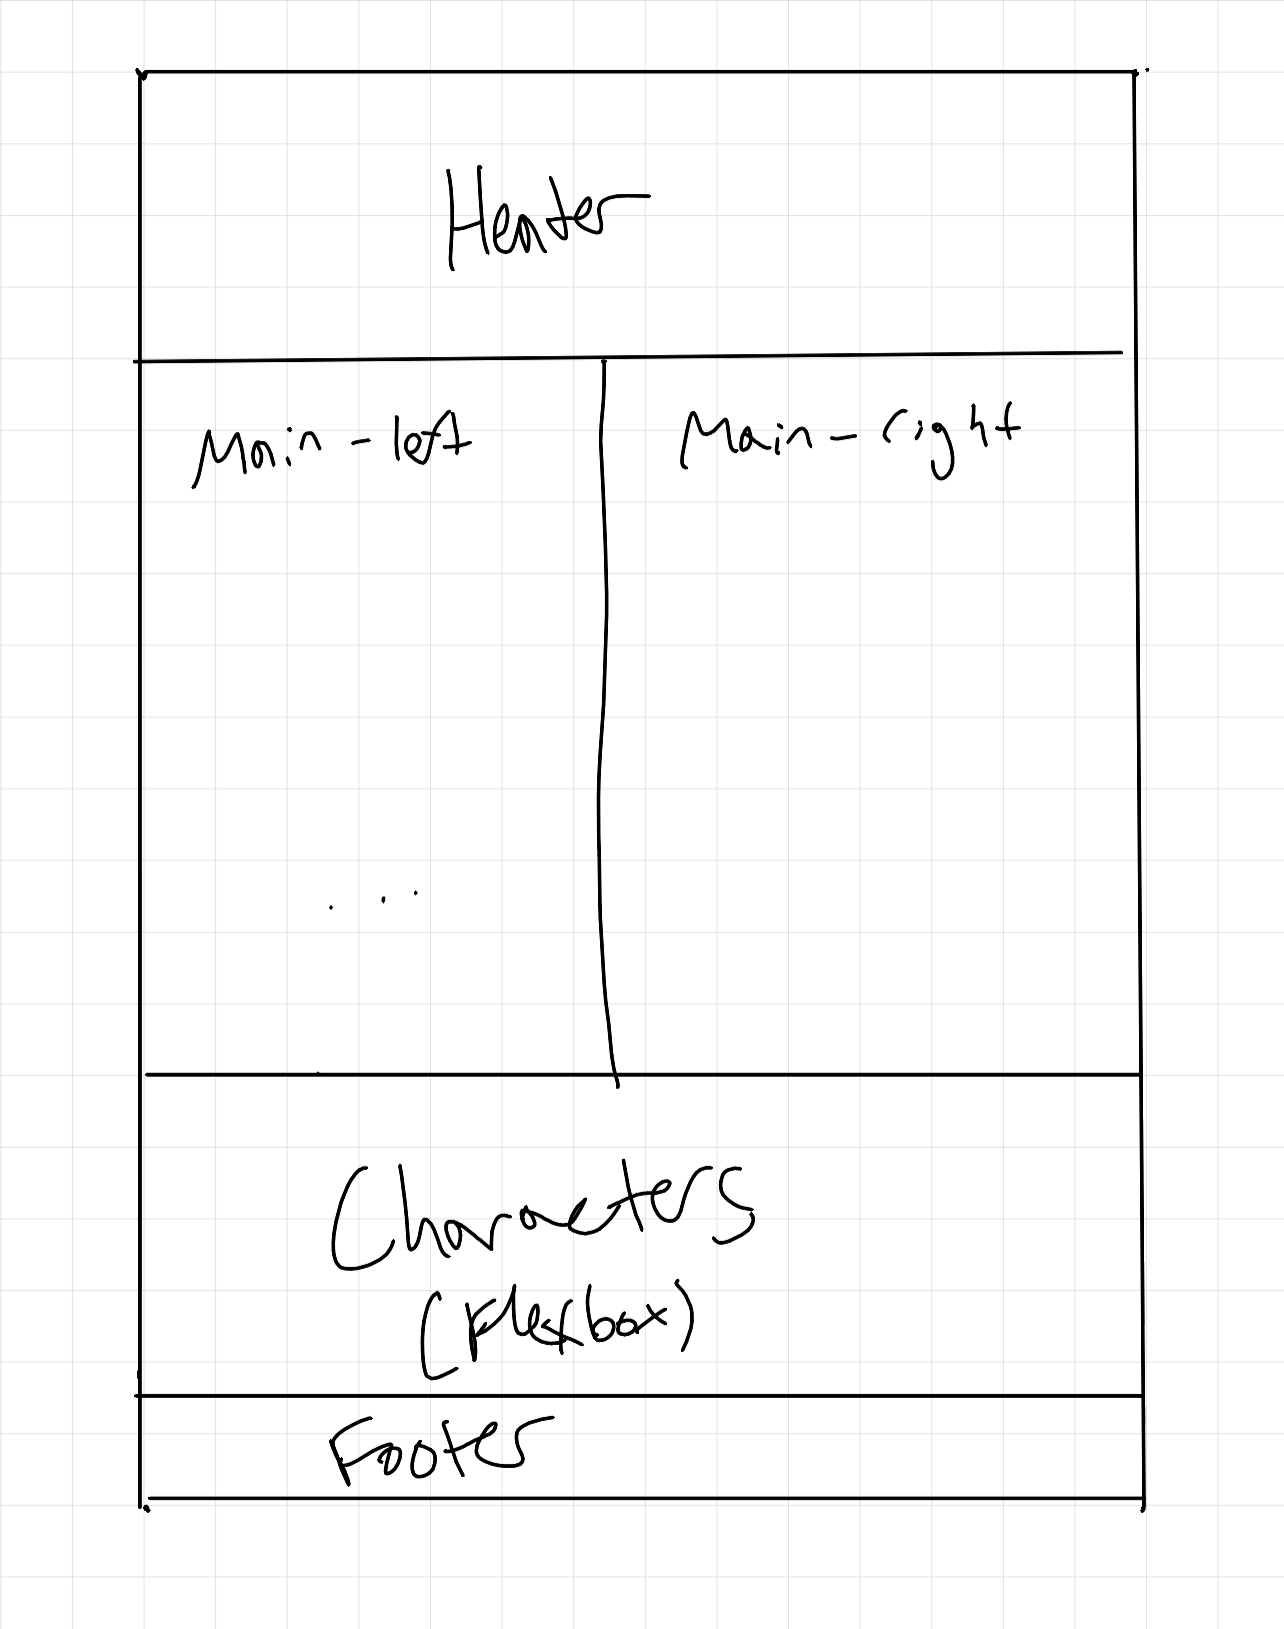 Header
Main - left
Main - right
. . .
Characters
(Flexbox)
Footer